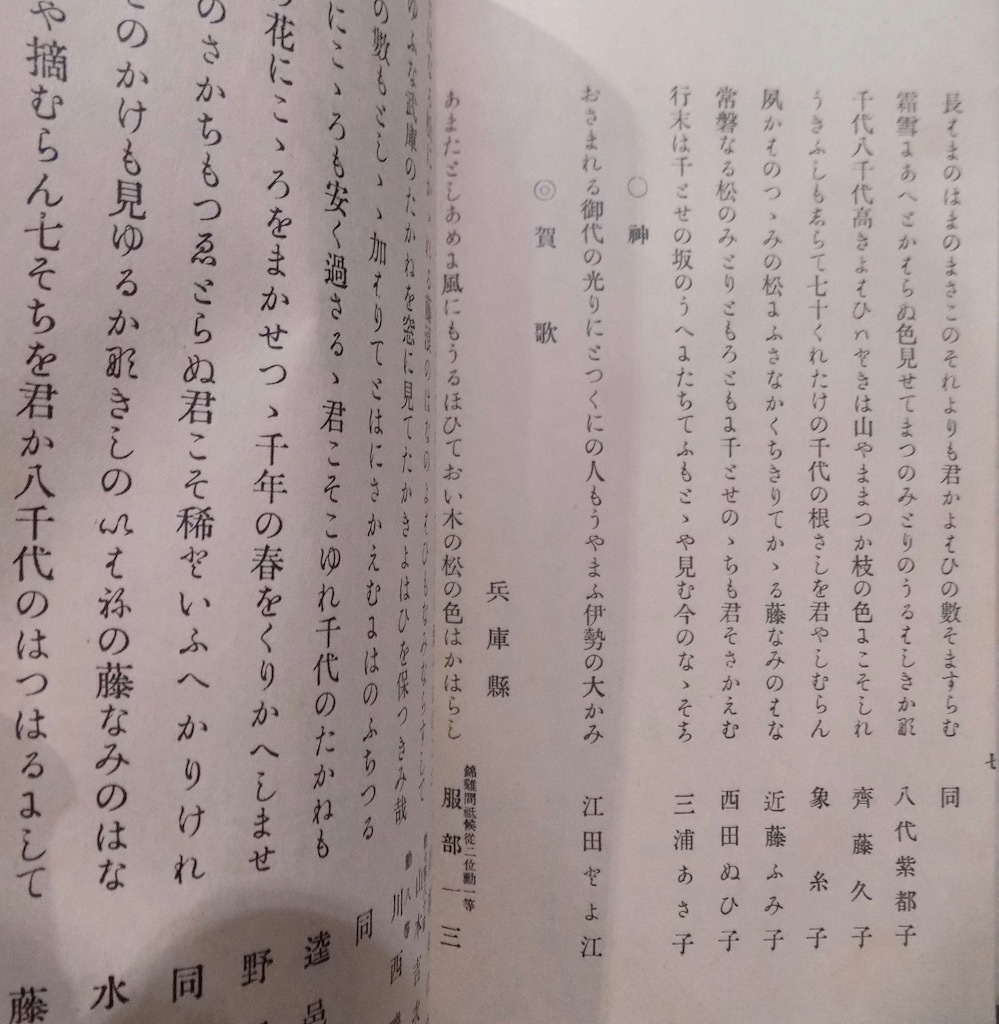 七
長はまのはまのまさこのそれよりも君かよはひの數そますらむ 同
霜雪にあへとかはらぬ色見せてまつのみとりのうるはしきか那 八代紫都子
千代八千代高きよはひハときは山やままつか枝の色にこそしれ 齊藤久子
うきふしもしらて七十くれたけの千代の根さしを君やしむらん 象糸子
夙かはのつゝみの松にふさなかくちきりてかゝる藤なみのはな 近藤ふみ子
常磐なる松のみとりともろともに千とせのゝちも君そさかえむ 西田ぬひ子
行末は千とせの坂のうへにたちてふもとゝや見む今のなゝそち 三浦あさ子
〇神
おさまれる御代の光りにとつくにの人もうやまふ伊勢の大かみ 江田とよ江
◎賀歌
兵庫縣
錦雞間祗候從二位勳一等
あまたとしあめに風にもうるほひておい木の松の色はかはらし 服部一三
ふな武庫のたかねを窓に見てたかきよはひを保つきみ哉 川西
の數もとしゝ加はりてとはにさかえむにはのふちつる 同
にこゝろも安く過さるゝ君こそこゆれ千代のたかねも 逵邑
花にこゝろをまかせつゝ千年の春をくりかへしませ 野
のさかちもつゑとらぬ君こそ稀といふへかりけれ 同
のかけも見ゆるか那きしのいはねの藤なみのはな 水
や摘むらん七そちを君か八千代のはつはるにして 藤